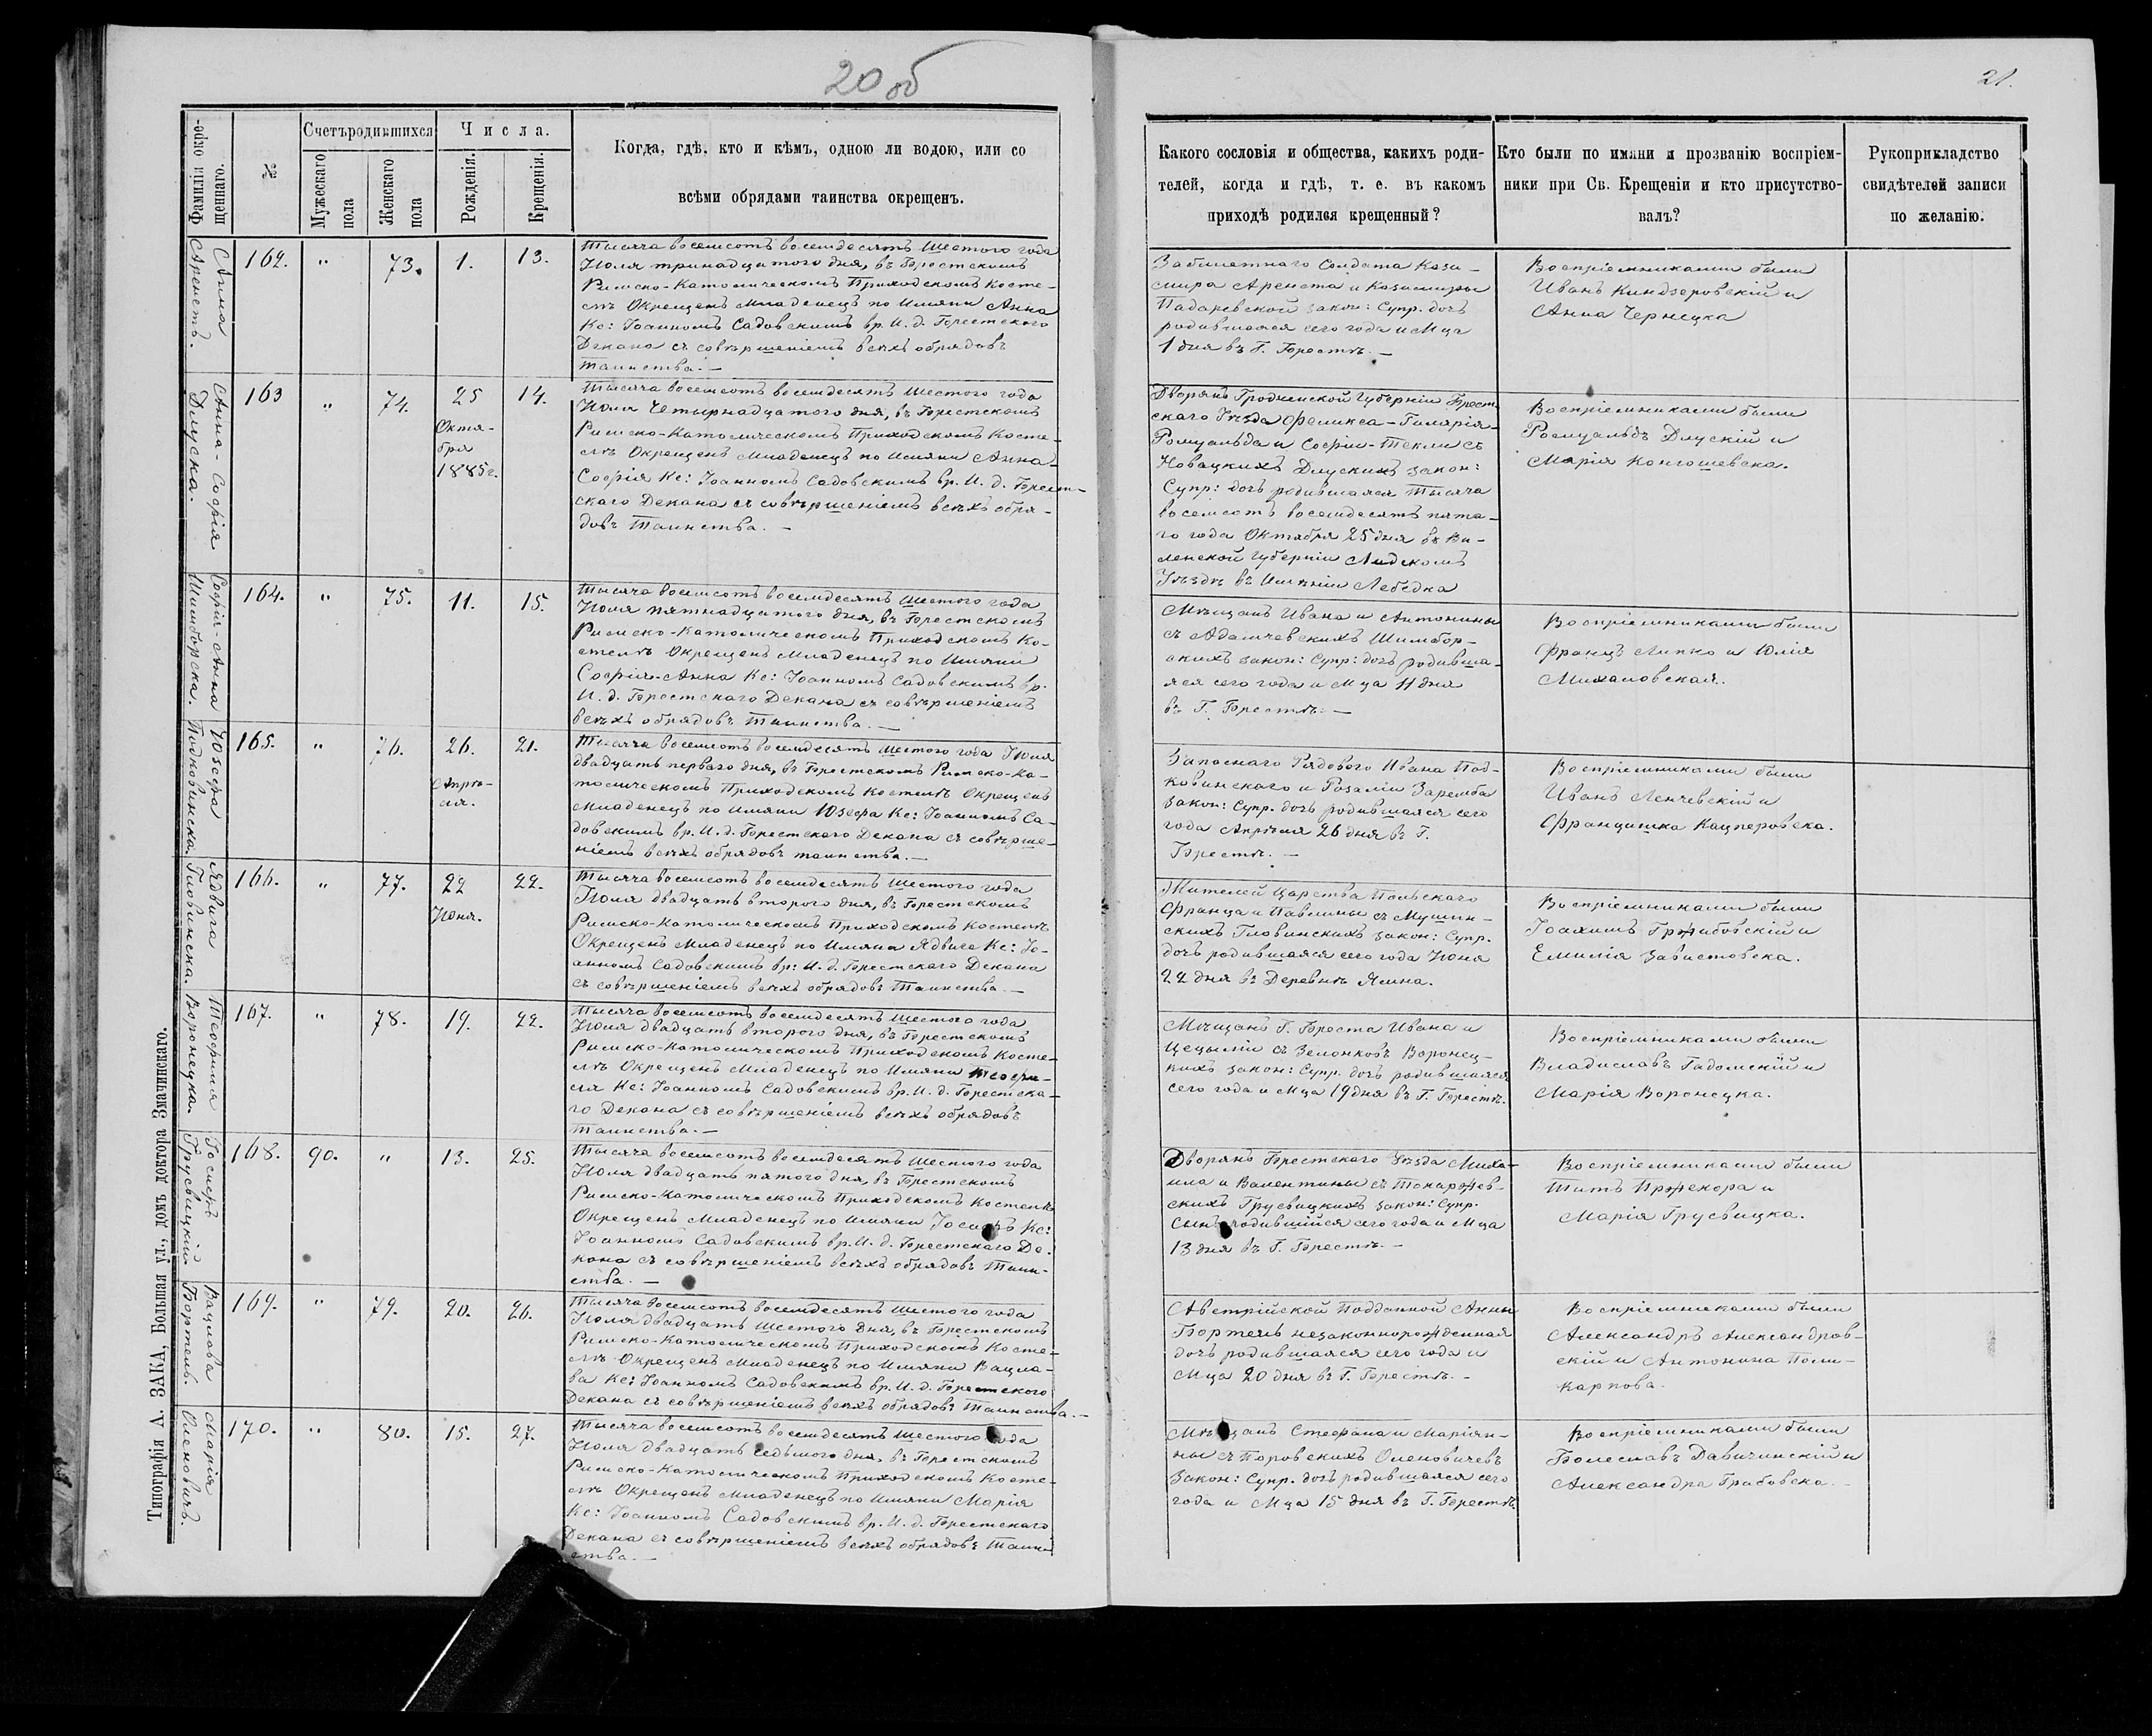 20 об
21.
Типографія А. ЗАКА, Большая ул., домъ доктора Значинскаго.
Фамилія и имя окре-
щеннаго.
№
Счетъ родившихся
Мужескаго
пола
Женскаго
пола
Числа.
Рожденія.
Крещенія.
Когда, гдѣ, кто и кѣмъ, одною ли водою, или со
всѣми обрядами таинства окрещенъ.
Какого сословія и общества, какихъ роди-
телей, когда и гдѣ, т. е. въ какомъ
приходѣ родился крещенный?
Кто были по имяни и прозванію воспріем-
ники при Св. Крещеніи и кто присутство-
валъ?
Рукоприкладство
свидѣтелей записи
по желанію.
Анна
Аренстъ.
162.
"
73.
1.
13.
Тысяча восемсотъ восемдесятъ Шестого года
Іюля тринадцатого дня, въ Брестскомъ
Римско-Католическомъ Приходскомъ Косте-
лѣ Окрещенъ Младенецъ по Имяни Анна
Кс: Іоанномъ Садовскимъ вр. И. д. Брестского
Декана съ совѣршеніемъ всѣхъ обрядовъ
Таинства. —
Забилетнаго Солдата Кази-
мира Аренста и Казимиры
Падаревской закон: Супр. дочъ
родившаяся сего года и М-ца
1 дня въ Г. Брестѣ. —
Воспріемниками были
Иванъ Киндзеровскій и
Анна Чернецка
Анна-Софія
Длуска.
163
"
74.
25
Октя-
бря
1885 г.
14.
Тысяча восемсотъ восемдесятъ шестого года
Іюля Четырнадцатого дня, въ Брестскомъ
Римско-Католическомъ Приходскомъ Косте-
лѣ Окрещенъ Младенецъ по Имяни Анна-
Софія Кс: Іоанномъ Садовскимъ вр. И. д. Брест-
скаго Декана съ совѣршеніемъ всѣхъ обря-
довъ Таинства. —
Дворянъ Гродненской Губерніи Брест-
скаго Уѣзда Феликса-Гилярія-
Ромуальда и Софіи-Текли съ
Новацкихъ Длускихъ закон:
Супр: дочъ родившаяся Тысяча
восемсотъ восемдесятъ пята-
го года Октября 25 дня въ Ви-
ленской Губерніи Лидскомъ
Уѣздѣ въ Имѣніи Лебедка
Воспріемниками были
Ромуальдъ Длускій и
Марія Контошевска.
Софія-Анна
Шимборска.
164.
"
75.
11.
15.
Тысяча восемсотъ восемдесятъ Шестого года
Іюля пятнадцатого дня, въ Брестскомъ
Римско-Католическомъ Приходскомъ Ко-
стелѣ Окрещенъ Младенецъ по Имяни
Софія-Анна Кс: Іоанномъ Садовскимъ вр.
И. д. Брестскаго Декана съ совѣршеніемъ
всѣхъ обрядовъ Таинства. —
Мѣщанъ Ивана и Антонины
съ Адамчевскихъ Шимбор-
скихъ закон: Супр: дочъ родивша-
яся сего года и М-ца 11 дня
въ Г. Брестѣ. —
Воспріемниками были
Францъ Липко и Юлія
Михаловская.
Юзефа
Подковинска.
165.
"
76.
26.
Апрѣ-
ля.
21.
Тысяча восемсотъ восемдесятъ шестого года Іюля
двадцать первого дня, въ Брестскомъ Римско-Ка-
толическомъ Приходскомъ Костелѣ Окрещенъ
Младенецъ по имяни Юзефа Кс: Іоанномъ Са-
довскимъ вр. И. д. Брестского Декана съ совѣрше-
ніемъ всѣхъ обрядовъ таинства. —
Запаснаго Рядового Ивана Под-
ковинскаго и Розаліи Заремба
закон: Супр. дочъ родившаяся сего
года Апрѣля 26 дня въ Г.
Брестѣ. —
Воспріемниками были
Иванъ Ленчевскій и
Францишка Кацперовска.
Ядвига
Гловинска.
166.
"
77.
22
Іюня.
22.
Тысяча восемсотъ восемдесятъ Шестого года
Іюля двадцать второго дня, въ Брестскомъ
Римско-Католическомъ Приходскомъ Костелѣ
Окрещенъ Младенецъ по Имяни Ядвига Кс: Іо-
анномъ Садовскимъ вр: И. д. Брестскаго Декана
съ совѣршеніемъ всѣхъ обрядовъ Таинства —
Жителей Царства Польскаго
Франца и Павлины съ Мушин-
скихъ Гловинскихъ закон: Супр.
дочъ родившаяся сего года Іюня
22 дня въ Деревнѣ Ялина.
Воспріемниками были
Іоахимъ Гржибовскій и
Емилія Завистовска.
Теофиля
Воронецка.
167.
"
78.
19.
22.
Тысяча восемсотъ восемдесятъ Шестого года
Іюля двадцать второго дня, въ Брестскомъ
Римско-Католическомъ Приходскомъ Косте-
лѣ Окрещенъ Младенецъ по Имяни Теофи-
ля Кс: Іоанномъ Садовскимъ вр. И. д. Брестска-
го Декана съ совѣршеніемъ всѣхъ обрядовъ
Таинства. —
Мѣщанъ Г. Бреста Ивана и
Цецыліи съ Зелонковъ Воронец-
кихъ закон: Супр. дочъ родившаяся
сего года и М-ца 19 дня въ Г. Брестѣ.
Воспріемниками были
Владиславъ Гадомскій и
Марія Воронецка.
Іосифъ
Грусвицкій
168.
90.
"
13.
25.
Тысяча восемсотъ восемдесятъ Шестого года
Іюля двадцать пятого дня, въ Брестскомъ
Римско-Католическомъ Приходскомъ Костелѣ
Окрещенъ Младенецъ по Имяни Іосифъ Кс:
Іоанномъ Садовскимъ вр. И. д. Брестскаго Де-
кана съ совѣршеніемъ всѣхъ обрядовъ Таин-
ства. —
Дворянъ Брестскаго Уѣзда Миха-
ила и Валентины съ Токаржев-
скихъ Грусвицкихъ закон: Супр.
Сынъ родившійся сего года и М-ца
13 дня въ Г. Брестѣ. —
Воспріемниками были
Титъ Пржекора и
Марія Грусвицка.
Вацлава
Бортель.
169.
"
79.
20.
26.
Тысяча восемсотъ восемдесятъ шестого года
Іюля двадцать Шестого Дня, въ Брестскомъ
Римско-Католическомъ Приходскомъ Косте-
лѣ Окрещенъ Младенецъ по Имяни Вацла-
ва Кс: Іоанномъ Садовскимъ вр. И. д. Брестского
Декана съ совѣршеніемъ всѣхъ обрядовъ Таинства. —
Австрійской Подданной Анны
Бортель незаконнорожденная
дочъ родившаяся сего года и
М-ца 20 дня въ Г. Брестѣ. -
Воспріемниками были
Александръ Александров-
скій и Антонина Поли-
карпова.
Марія
Оленовичъ.
170.
"
80.
15.
27.
Тысяча восемсотъ восемдесятъ шестого года
Іюля двадцать седьмого дня, въ Брестскомъ
Римско-Католическомъ Приходскомъ Косте-
лѣ Окрещенъ Младенецъ по Имяни Марія
Кс: Іоанномъ Садовскимъ вр. И. д. Брестскаго
Декана съ совѣршеніемъ всѣхъ обрядовъ Таин-
ства. —
Мѣщанъ Стефана и Маріян-
ны съ Поровскихъ Оленовичевъ
Закон: Супр. дочъ родившаяся сего
года и М-ца 15 дня въ Г. Брестѣ.
Воспріемниками были
Болеславъ Давичинскій и
Александра Грабовска. -